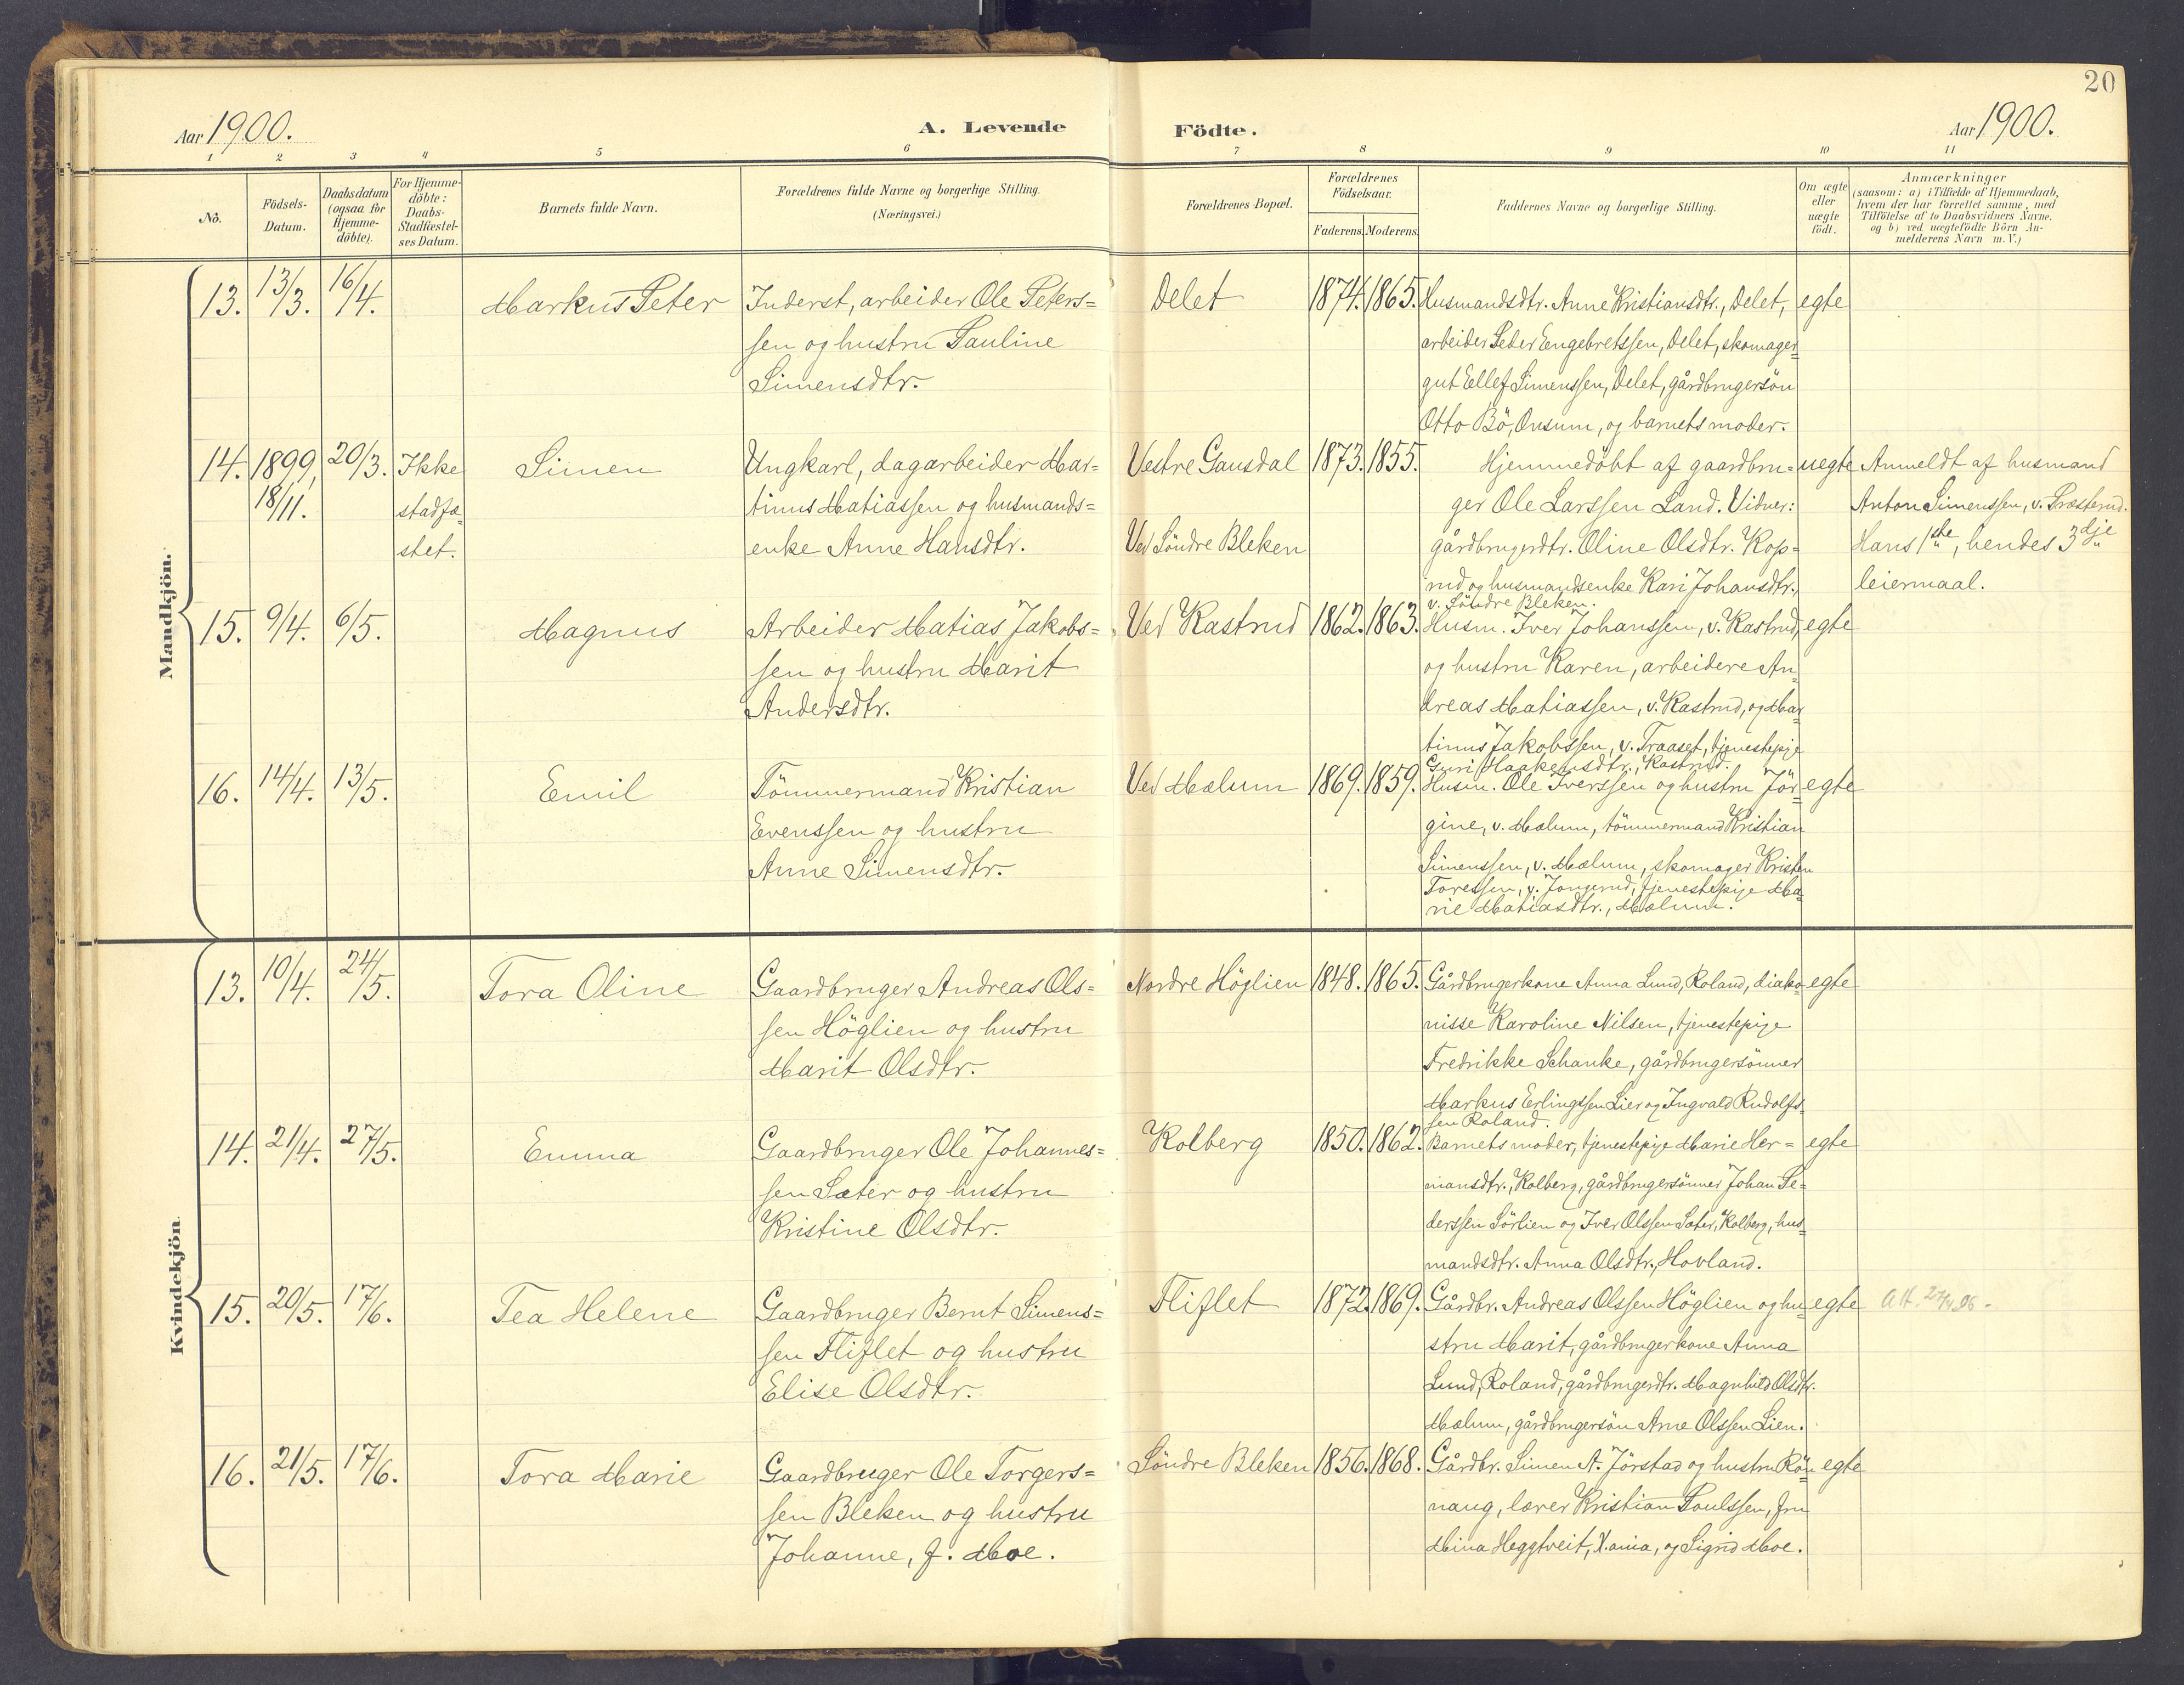 20
Aar 1900.
A. Levende Födte.
Aar 1900.
1 2 3 4 5 6 7 8 9 10 11
No.
Födsels-Datum.
Daabsdatum (ogsaa for Hjemmedöbte).
For Hjemmedöbte: Daabs-Stadfæstelses Datum.
Barnets fulde Navn.
Forældrenes fulde Navne og borgerlige Stilling.
(Næringsvei.)
Forældrenes Bopæl.
Forældrenes Födselsaar.
Faderens. Moderens.
Faddernes Navne og borgerlige Stilling.
Om ægte eller uægte födt.
Anmærkninger
(saasom: a) i Tilfælde af Hjemmedaab,
hvem der har forrettet samme, med
Tilföielse af to Daabsvidners Navne.
og b) ved uægtefödte Börn An-
melderens Navn m. V.)
Mandkjön.
13. 13/3. 16/4. Markus Peter
Inderst, arbeider Ole Peters=
sen og hustru Pauline
Simensdtr.
Delet 1874. 1865.
Husmandsdtr. Anne Kristiansdtr., Delet,
arbeider Peder Engebretssen, Delet, skomager=
gut Ellef Simenssen, Delet, gårdbrugersön
Otto Bö, Onsum, og barnets moder.
egte
14. 1899, 18/11. 20/3. Ikke
stadfæ=
stet.
Simen
Ungkarl, dagarbeider Mar=
tinus Matiassen og husmands=
enke Anne Hansdtr.
Vestre Gausdal 1873. 1855.
Ved Söndre Bleken
Hjemmedöbt af gaardbru=
ger Ole Larssen Land. Vidner:
gårdbrugerdtr. Oline Olsdtr. Kop=
rud og husmandsenke Kari Johansdtr.,
v. Söndre Bleken.
uegte
Anmeldt af husmand
Anton Simenssen, v. Præsterud.
Hans 1ste, hendes 3dje
leiermaal.
15. 9/4. 6/5. Magnus
Arbeider Matias Jakobs=
sen og hustru Marit
Andersdtr.
Ved Kastrud 1862. 1863.
Husm. Iver Johanssen, v. Kastrud,
og hustru Karen, arbeidere An=
dreas Matiassen, v. Kastrud, og Mar=
tinus Jakobssen, v. Traaset, tjenestepige
Guri Haakensdtr., Kastrud.
egte
16. 14/4. 13/5. Emil
Tömmermand Kristian
Evenssen og hustru
Anne Simensdtr.
Ved Mælum 1869. 1859.
Husm. Ole Iverssen og hustru Jör=
gine, v. Mælum, tömmermand Kristian
Simenssen, v. Mælum, skomager Kristen
Toressen, v. Jongerud, tjenestepige Ma=
rie Matiasdtr., Mælum.
egte
Kvindekjön.
13. 10/4. 24/5. Tora Oline
Gaardbruger Andreas Ols=
sen Höglien og hustru
Marit Olsdtr.
Nordre Höglien 1848. 1865.
Gårdbrugerkone Anna Lund, Roland, diako=
nisse Karoline Nilsen, tjenestepige
Fredrikke Schanke, gårdbrugersönner
Markus Erlingssen Lier og Ingvald Rudolfs=
sen Roland.
egte
14. 21/4. 27/5. Emma
Gaardbruger Ole Johannes=
sen Sæter og hustru
Kristine Olsdtr.
Kolberg 1850. 1862.
Barnets moder, tjenestepige Marie Her=
mansdtr., Kolberg, gårdbrugersönner Johan Pe=
derssen Sörlien og Iver Olssen Sæter, Kolberg, hus=
mandsdtr. Anna Olsdtr., Hovland.
egte
15. 20/5. 17/6. Tea Helene
Gaardbruger Bernt Simens=
sen Fliflet og hustru
Elise Olsdtr.
Fliflet 1872. 1869.
Gårdbr. Andreas Olssen Höglien og hu=
stru Marit, gårdbrugerkone Anna
Lund, Roland, gårdbrugerdtr. Magnhild Olsdtr.
Mælum, gårdbrugersön Arne Olssen Lien.
egte
16. 21/5. 17/6. Tora Marie
Gaardbruger Ole Torgers=
sen Bleken og hustru
Johanne, f. Moe.
Söndre Bleken 1856. 1868.
Gårdbr. Simen A. Jörstad og hustru Rön=
naug, lærer Kristian Poulssen, fru
Mina Heggtveit, X.ania, og Sigrid Moe.
egte